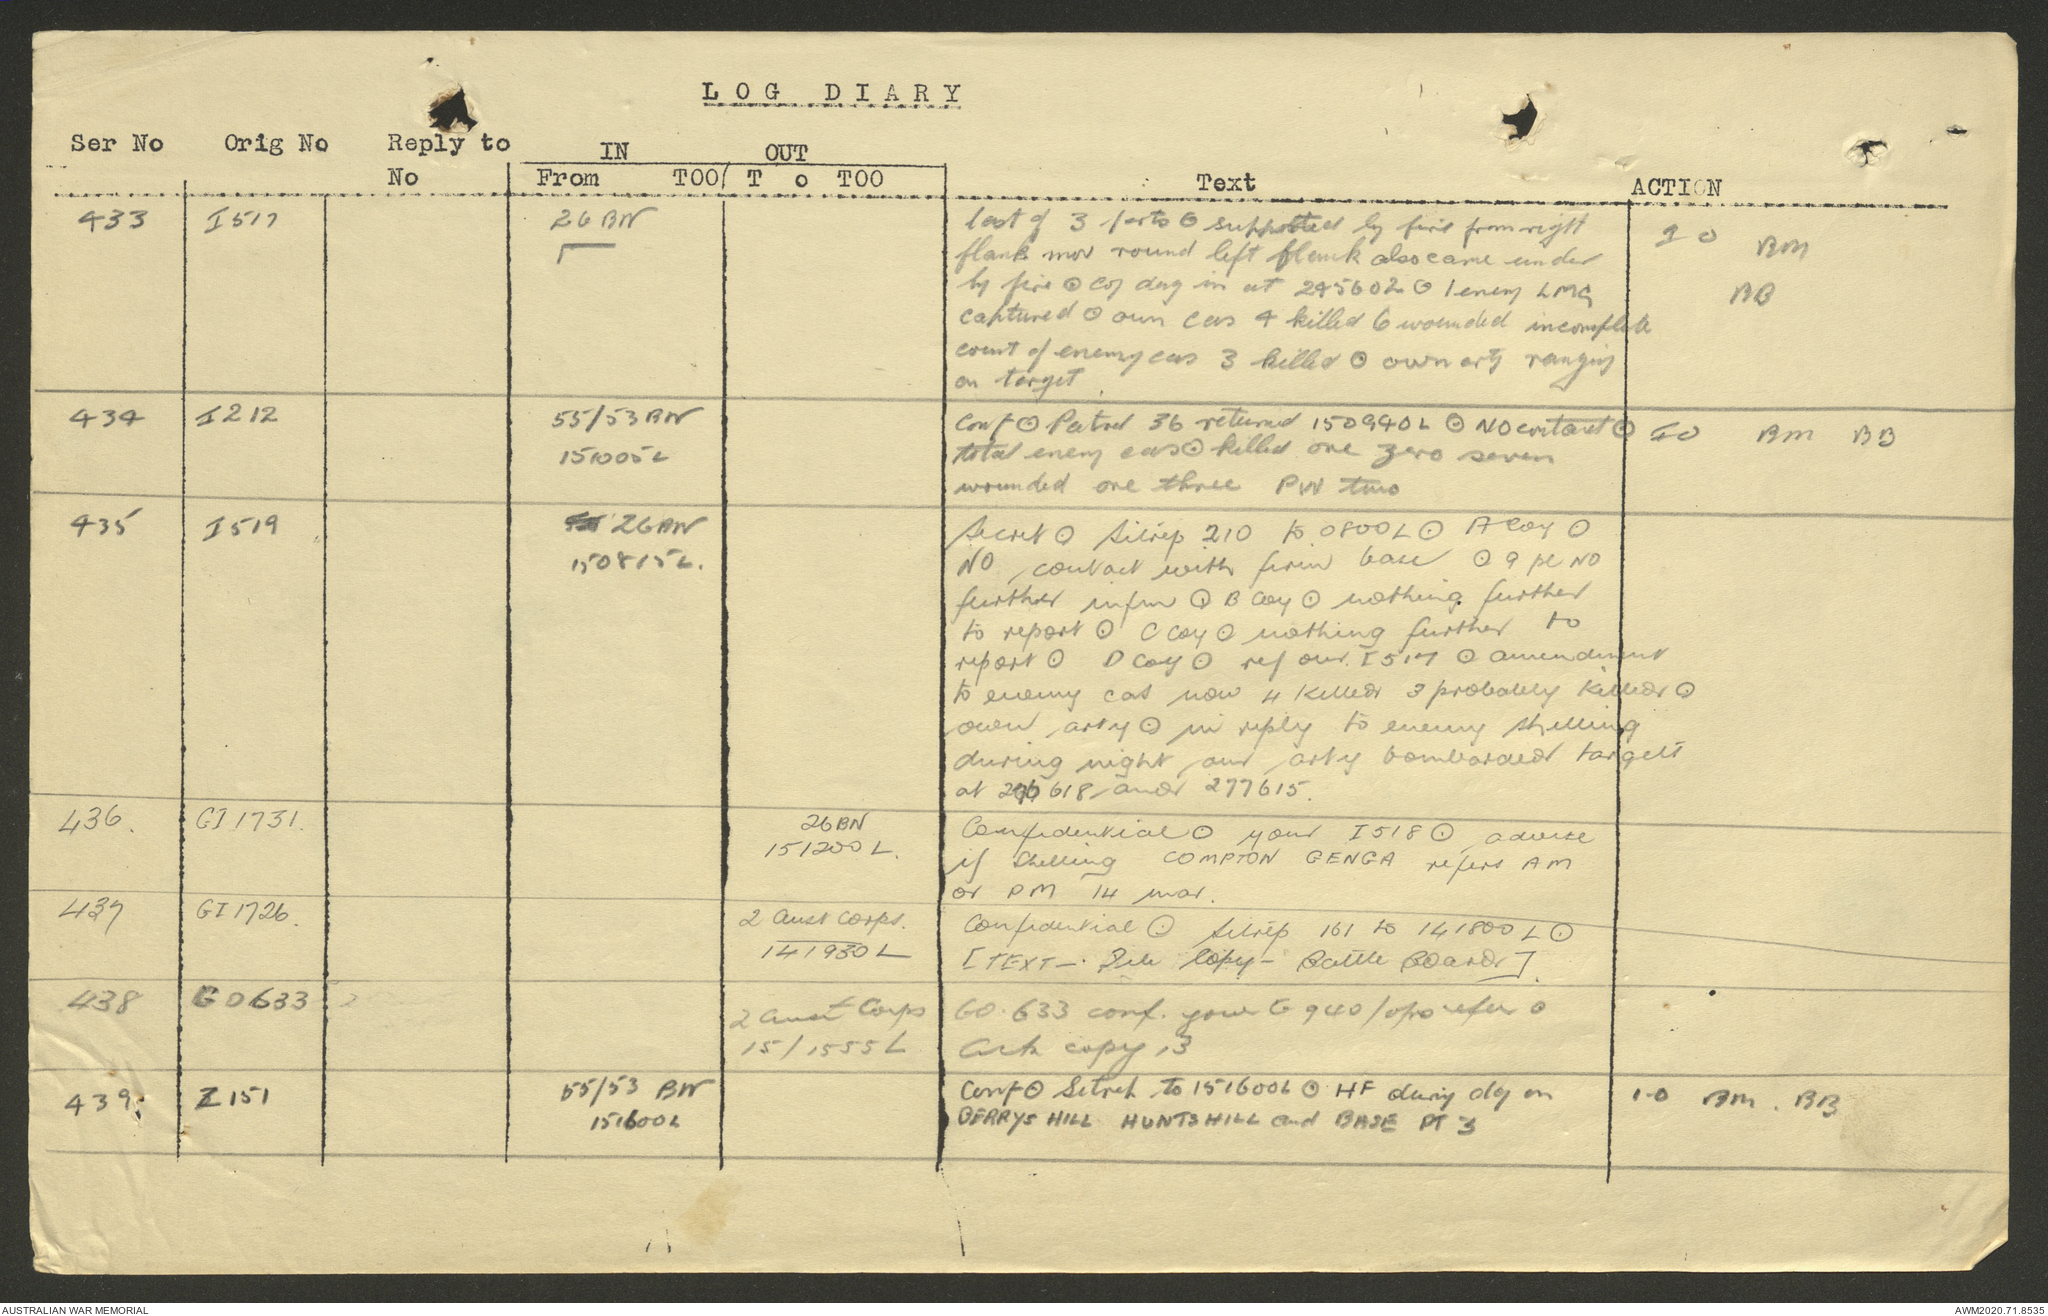 LOG DIARY
Ser No Orig No Reply to No IN From TOO OUT To TOO Text ACTION
433 I 517 26 BN last of 3 parts ⊙ supported by fire from right IO BM
flank mov round left flank also came under
by fire ⊙ coy dug in at 245602 ⊙ 1 enemy LMG BB
captured ⊙ own cas 4 killed 6 wounded incomplete
count of enemy cas 3 killed ⊙ own arty ranging
on target
434 I 212 55/53 BN Conf ⊙ Patrol 36 returned 150940L ⊙ NO contact ⊙ IO BM BB
151005L total enemy cas ⊙ killed one zero seven
wounded one three PW two
435 I 519 26 BN Secret ⊙ Sitrep 210 to 0800L ⊙ A Coy ⊙
150815L. NO contact with firm base ⊙ 9 pl NO
further infm ⊙ B Coy ⊙ nothing further
to report ⊙ C Coy ⊙ nothing further to
report ⊙ D Coy ⊙ ref our I 517 ⊙ amendment
to enemy cas now 4 killed 3 probably killed ⊙
own arty ⊙ in reply to enemy shelling
during night our arty bombarded targets
at 618 and 277615.
436. GI 1731. 26 BN Confidential ⊙ your I 518 ⊙ advise
151200 L. if shelling COMPTON GENGA refers AM
or PM 14 mar.
437 GI 1726. 2 Aust Corps. Confidential ⊙ Sitrep 161 to 141800 L ⊙
141930 L [TEXT - File Copy - Battle Board].
438 GO 633 2 Aust Corps GO 633 conf. your G 940/ops refer ⊙
15/1555 L Ack copy 13
439. I 151 55/53 BN Conf ⊙ Sitrep to 151600L ⊙ HF during day on IO BM. BB
151600L BERRYS HILL HUNTS HILL and BASE PT 3
AUSTRALIAN WAR MEMORIAL
AWM2020.71.8535